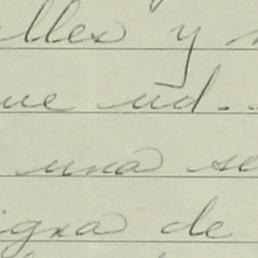 lles y
ue ud.
una se
igna de